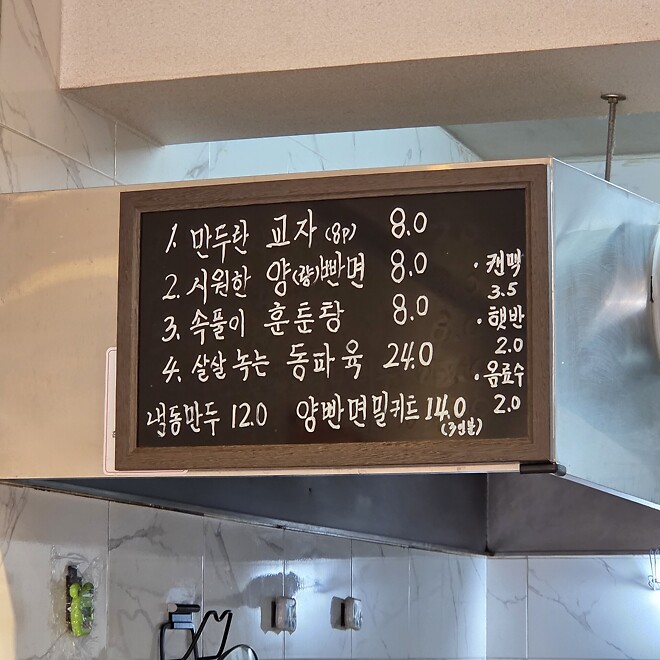 1. 만두란 교자 (8P) 8.0
2. 시원한 양(량)빤면 8.0
3. 속풀이 훈툰탕 8.0
4. 살살 녹는 동파육 24.0
냉동만두 12.0 양빤면밀키트 14.0
(3인분)
· 캔맥
3.5
· 햇반
2.0
· 음료수
2.0